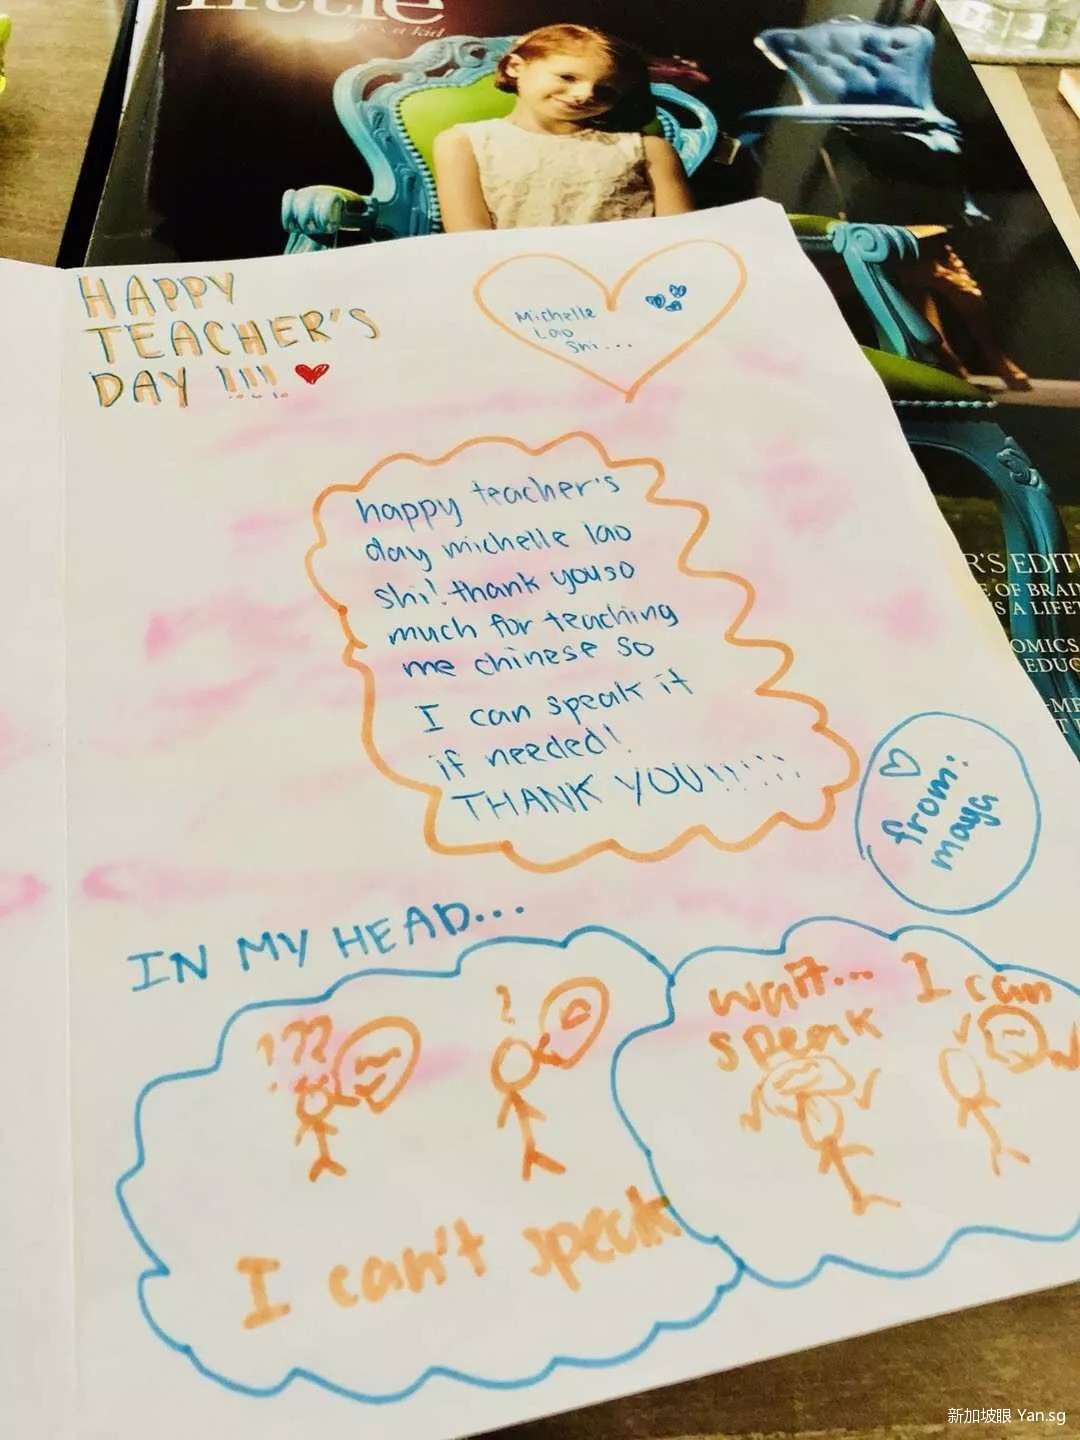 little
HAPPY
TEACHER'S
DAY !!!!
Michelle
Lao
Shi...
happy teacher's
day michelle lao
shi! thank you so
much for teaching
me chinese so
I can speak it
if needed!
THANK YOU!!!!!!
from:
maya
IN MY HEAD...
???
?
I can't speak
wait... I can
speak
R'S EDITI
E OF BRAIN
S A LIFET
OMICS,
EDUC
新加坡眼 Yan.sg